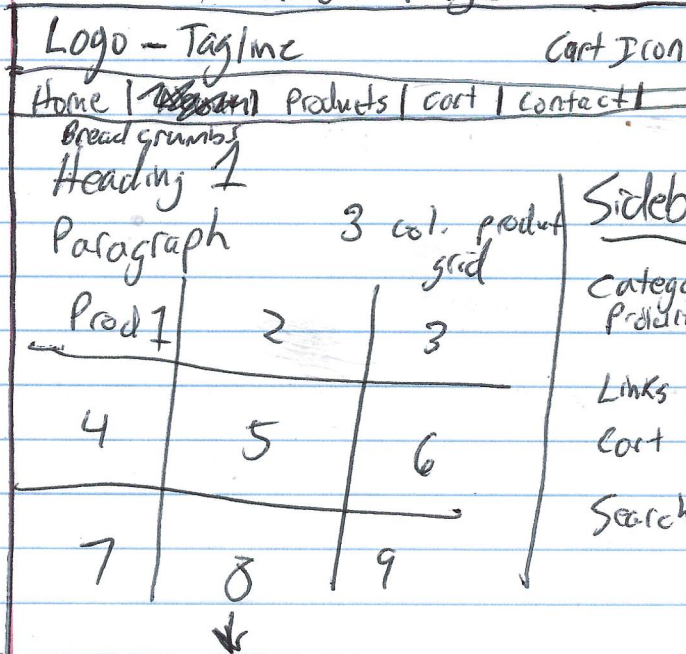 Logo - Tagline Cart Icon
Home | Products | Cart | Contact |
Breadcrumbs
Heading 1
Paragraph 3 col. product
grid
Prod 1 2 3
4 5 6
7 8 9
Sideb
Catego
Produ
Links
Cart
Search